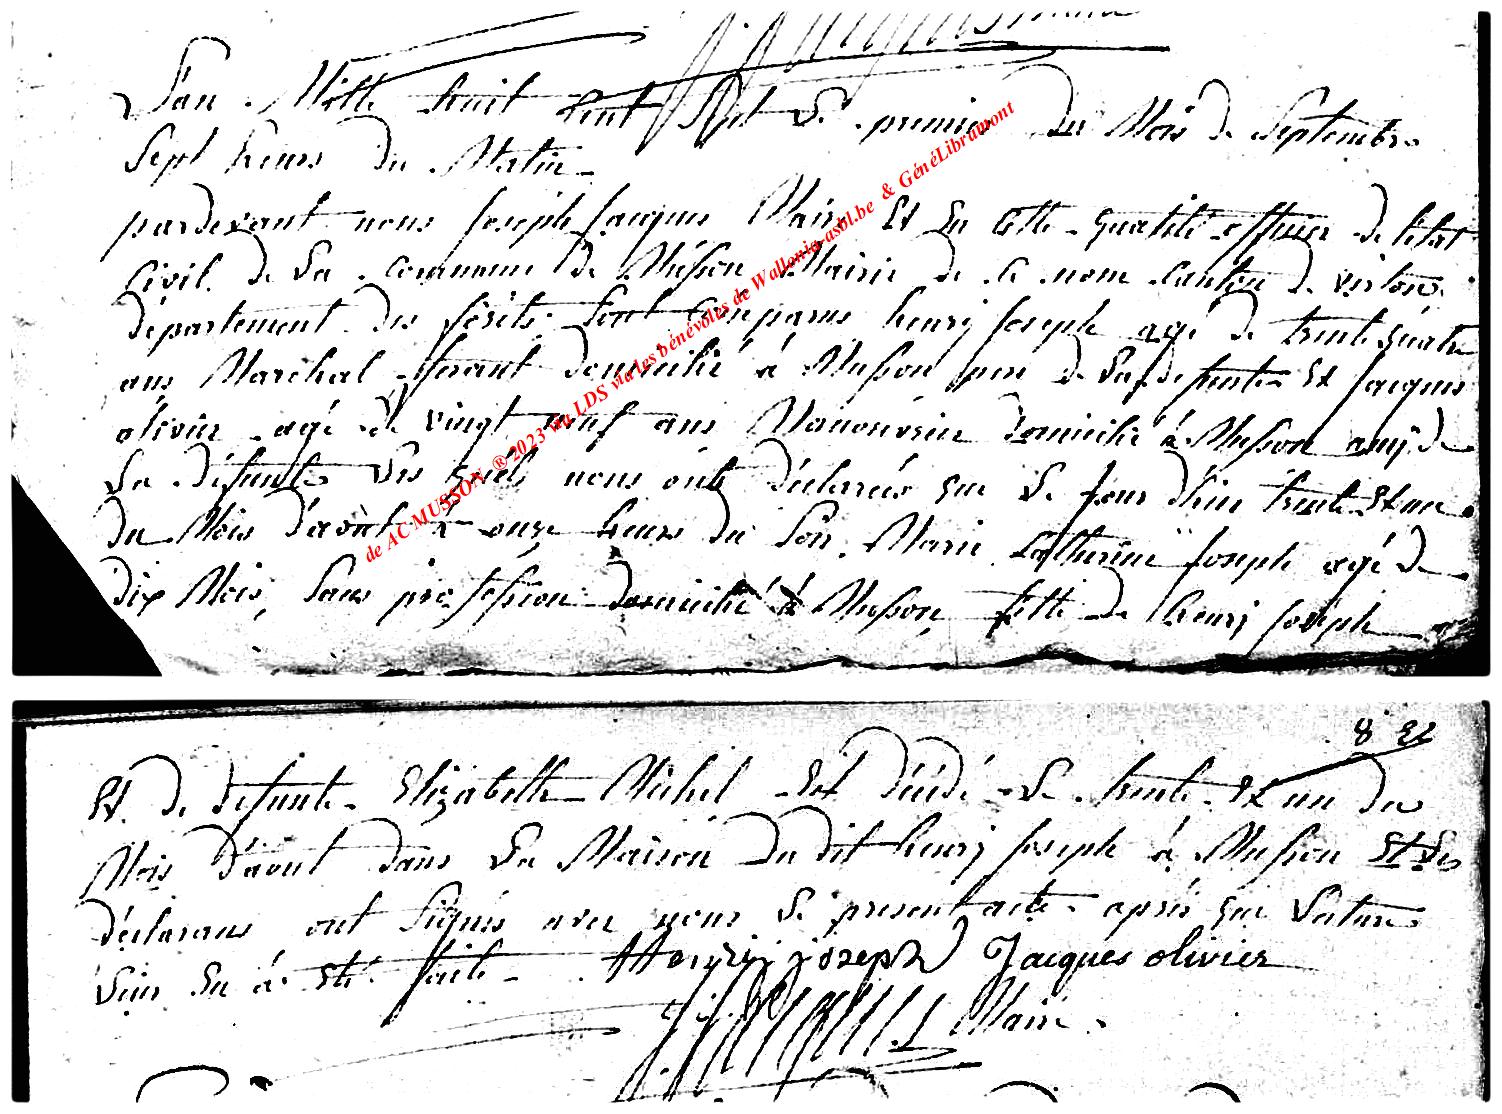 L'an Mille huit Cent Sept Le premier du Mois de Septembre
Sept heures du Matin
pardevant nous Joseph Jacques Maire Et En Cette qualité officier de l'état
Civil de La commune de Musson Mairie de Ce nom Canton de virton
département des forêts Sont Comparus henry Joseph agé de trente quatre
ans Marchal ferant domicilié à Musson pere de La defunte Et Jacques
olivier agé de vingt neuf ans Manouvrier domicilié à Musson amÿ de
La défunte Les quels nous ont déclarés que Le Jour d'hier trente Et un
du Mois d'août à onze heures du Soir Marie Catherine Joseph agé de
dix Mois, Sans profession domicilié à Musson fille de henry Joseph
de AC MUSSON ® 2023 via LDS via les bénévoles de Wallonia-asbl.be & GénéLibramont
Et de defunte Elizabette Michel Est décédé Le trente Et un du
Mois d'aout dans La Maison du dit henry Joseph à Musson Et Les
déclarans ont Signés avec nous Le present acte après que Lecture
Leur En à Eté faite Henry joseph Jacques olivier
Maire